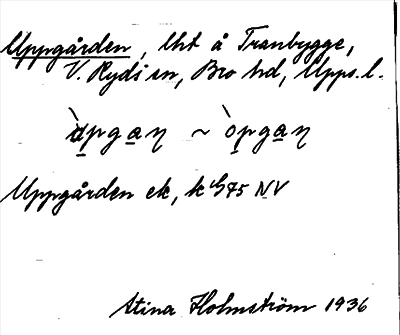 Uppgården, lht å Tranbygge,
V. Ryds sn, Bro hd, Upps. l.
ùpgan ~ òpgan
Uppgården ek, k G75 NV
Stina Holmström 1936